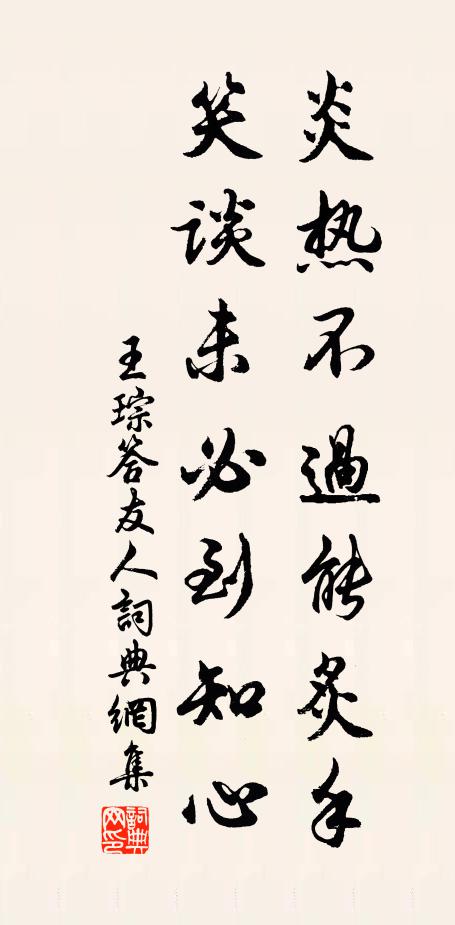 炎热不過能炙手
笑談未必到知心
王琮答友人詞典網集
詞典網印